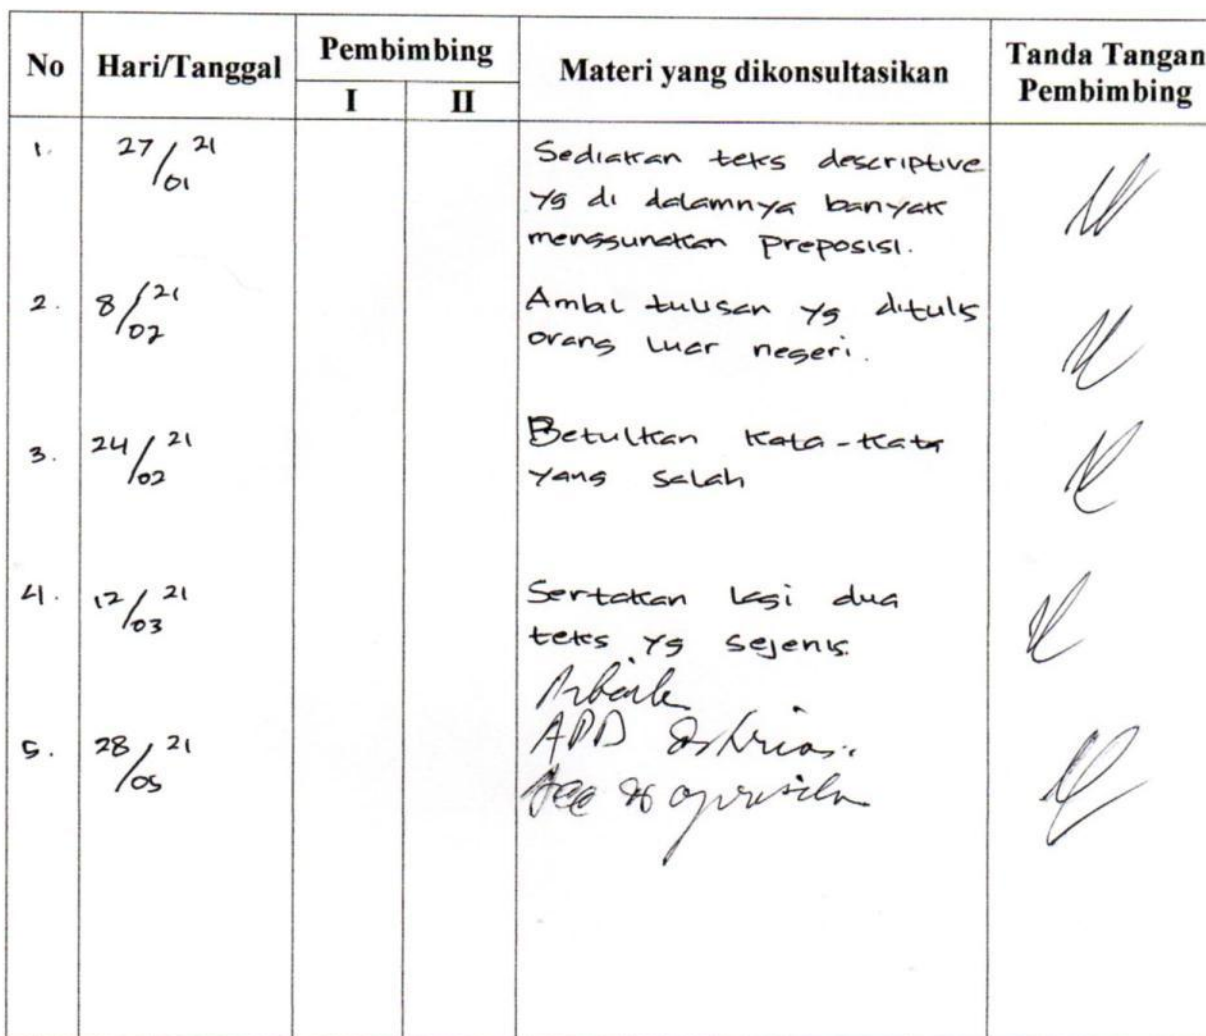 No Hari/Tanggal Pembimbing Materi yang dikonsultasikan Tanda Tangan Pembimbing
I II
1. 27/01 21 Sediakan teks descriptive
yg di dalamnya banyak
menggunakan preposisi.
2. 8/02 21 Ambil tulisan yg ditulis
orang luar negeri.
3. 24/02 21 Betulkan kata-kata
yang salah
4. 12/03 21 Sertakan lagi dua
teks yg sejenis.
5. 28/05 21 APD
Acc